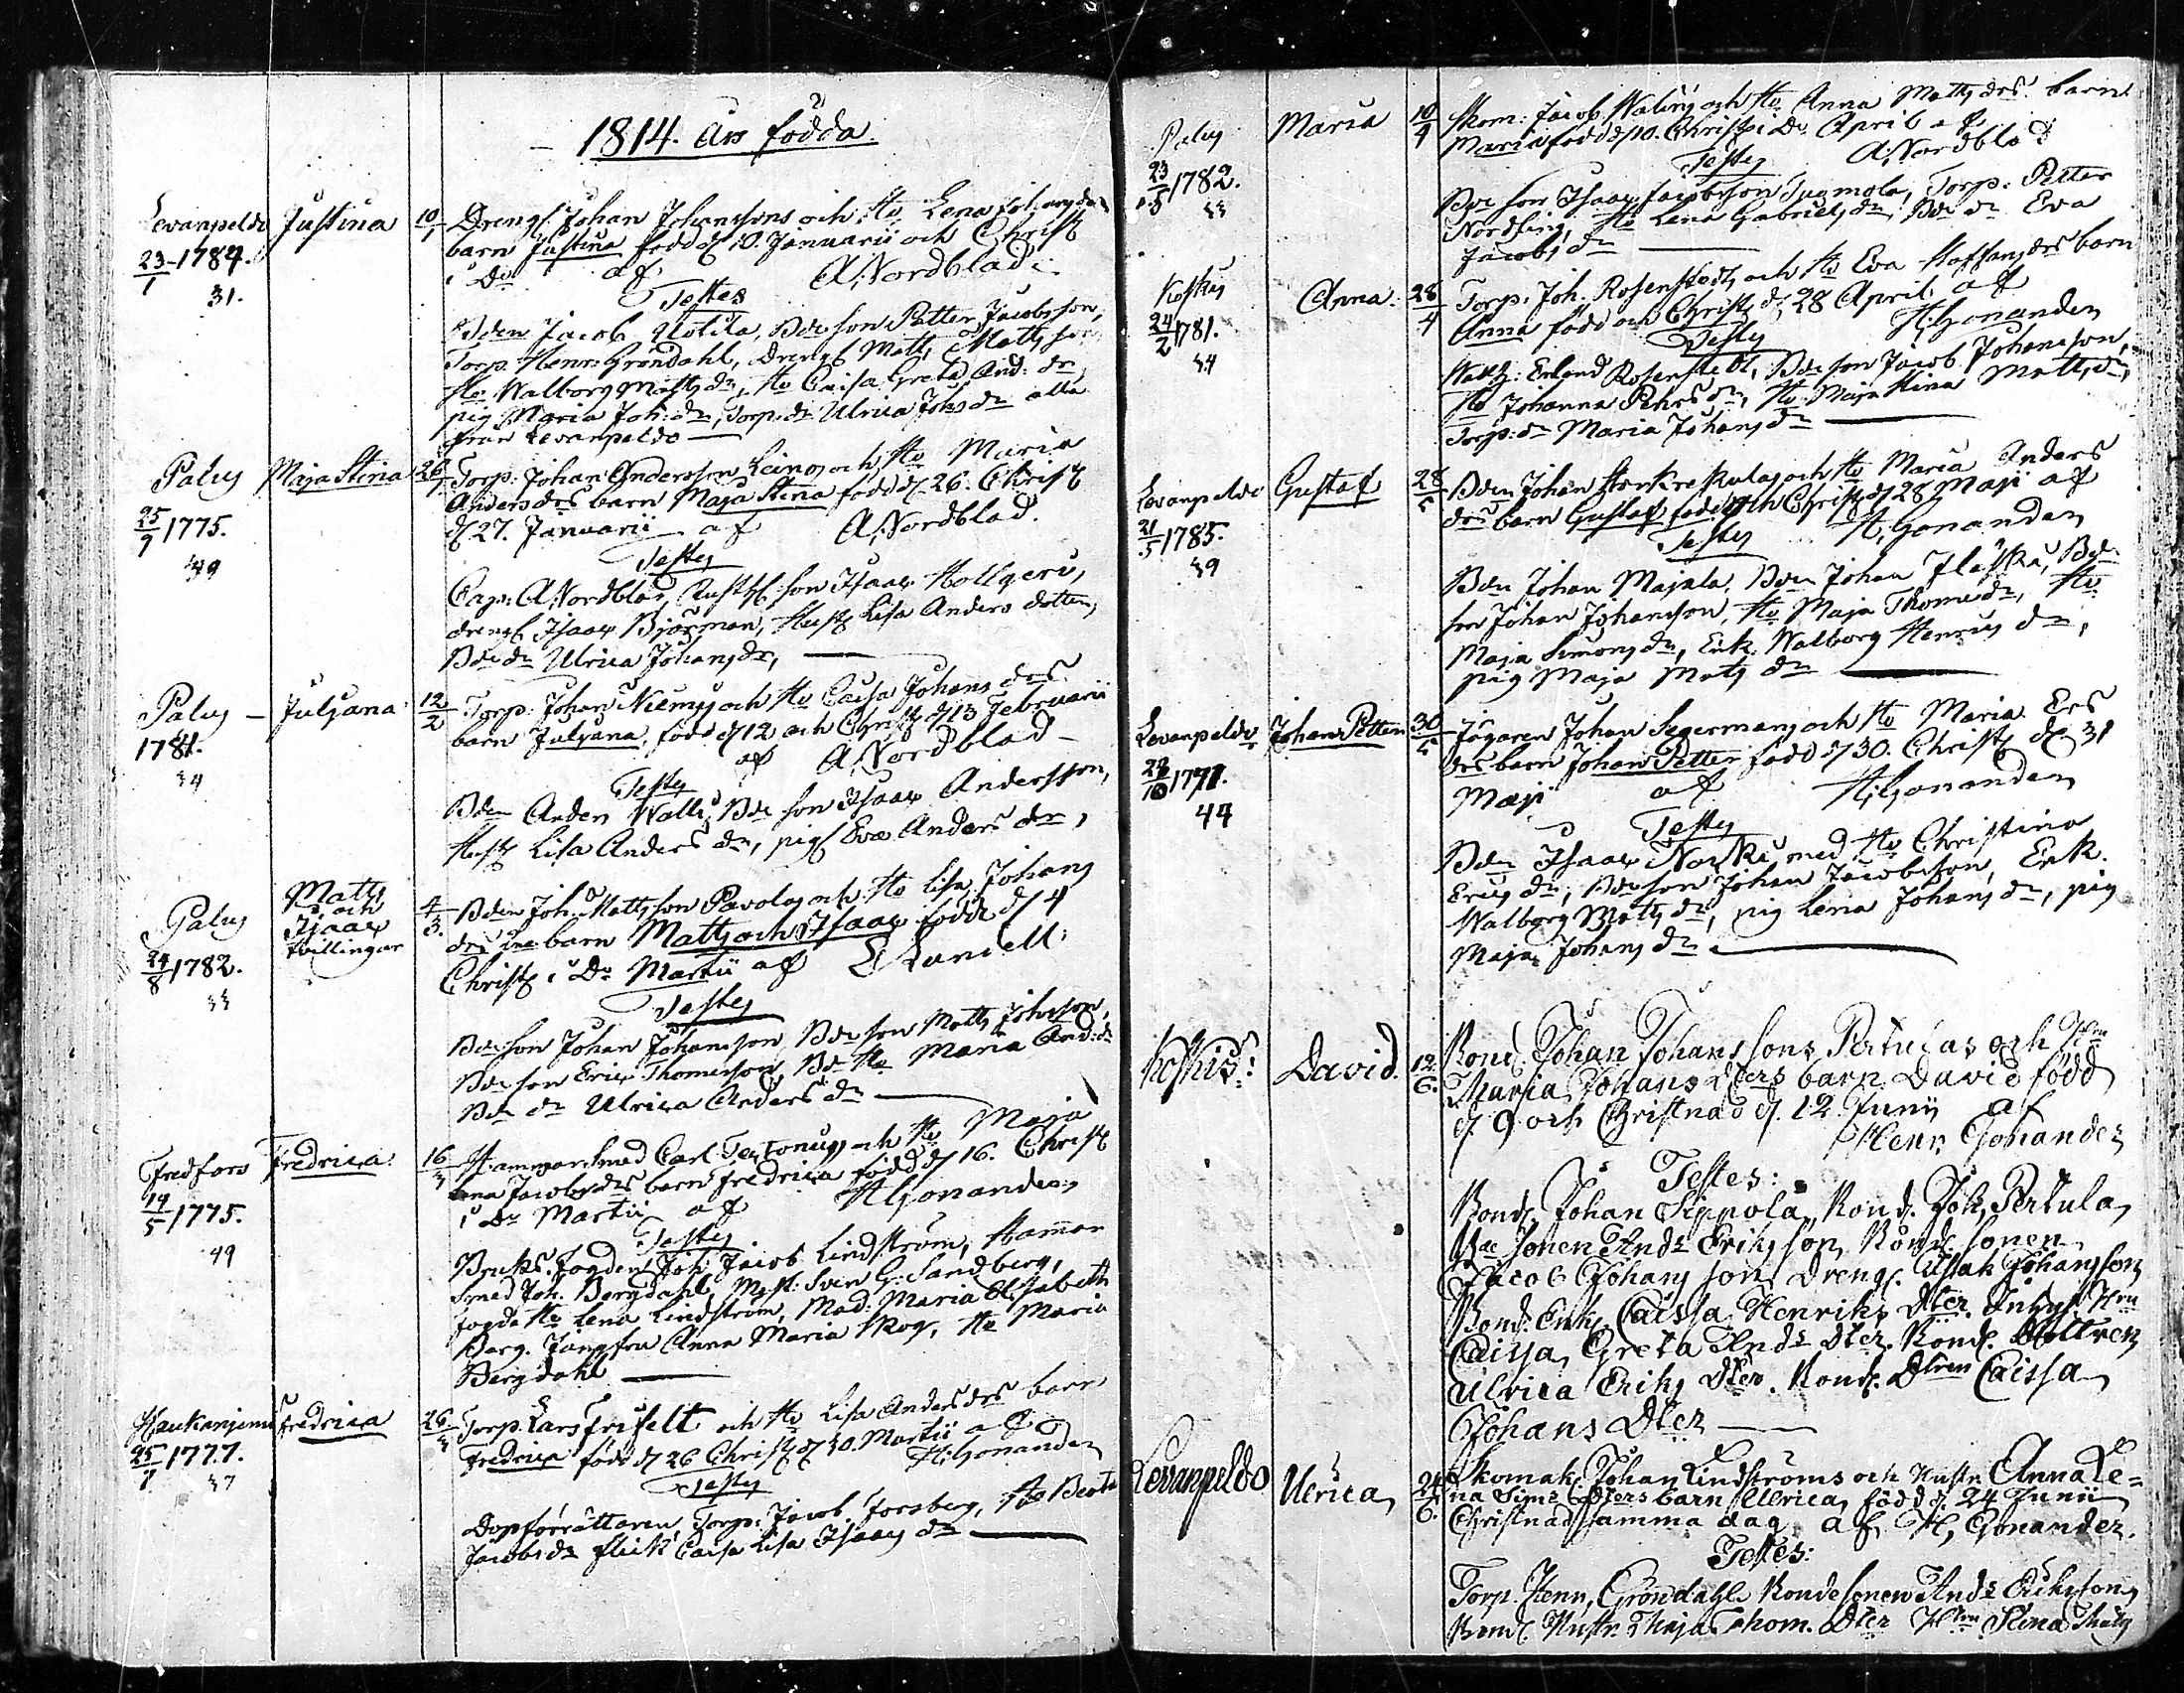 1814. års födda.
Levanpeldo Justina 10/1 Drengs. Johan Johanssons och Ho Lena Johans dr
23/1 1784. barn Justina född d 10. Januarii och Christ
31. i Do af A. Nordblad.
Testes
Bden Jacob Uotila, Bde son Petter Jacobsson,
Torp. Henr. Gröndahl, drengs Matts Mattsson
Ho Walborg Matts dr, Ho Caisa Greta And: dr,
pig Maria Joh: dr, Torp: dr Ulrica Johs dr alla
från Levanpeldo
Palus Maja Stina 26/1 Torp: Johan Andersson Leinos och Ho Maria
25/9 1775. Anders drs barn Maja Stina född d 26. Christ
d 27. Januarii af A. Nordblad.
Testes
Cap: A. Nordblad, son Isaac
drengs Isaac Björman, Hust Lisa Anders dotter,
Bde dr Ulrica Johans dr,
Palus Juljana 12/2 Torp: Johan Niemis och Ho Caisa Johans drs
1781. barn Juljana, född d 12 och Christ d 13 Februarii
34 af A. Nordblad
Testes
Bden Anders Walli, Bde son Isaac Andersson,
Hust Lisa Anders dr, pigs Eva Anders dr,
Palus Matts och Isaac tvillingar 4/3 Bden Joh. Mattsson Pavolas och Ho Lisa Johans
24/8 1782. drs barn Matts och Isaac födde d 4
33 Christ i Do Martii af
Testes
Bde son Johan Johansson, Bde son Matts Johsson,
Bde son Eric Thomasson, Bde Ho Maria And: dr
Bde dr Ulrica Anders dr
Fredfors Fredrica 16/3 Hammarsmed Carl och Ho Maja
19/5 1775. Lena Jacobs drs barn Fredrica född d 16. Christ
49 i Do Martii af H. Gonander
Testes
Bruks. Fogden Joh Jacob Lindström, Hammar
smed Joh. Bergdahl, Mest: Sven G. Sandberg,
fogde Ho Lena Lindström, Mad: Maria Elisabeth
Berg. Jungfru Anna Maria Skog, Ho Maria
Bergdahl
Haukanjemi Fredrica 26/3 Torp. Lars Frifelt och Ho Lisa Anders drs barn
25/7 1777. Fredrica född d 26 Christ d 30. Martii af
37 H. Gonander
Testes
Dopförrättaren, Torp: Jacob Forsberg, Ho Beata
Jacobs dr flick Caisa Lisa Isaacs dr
Palus Maria 10/4 Skom: Jacob Walin och Ho Anna Matts drs barn
23/8 1782. Maria född d 10. Christ i Do April af
33 Testes A. Nordblad
Bde son Isaac Jacobsson Sugmola, Torp: Petter
Nordling, Ho Lena Gabriels dr, Bde dr Eva
Jacobs dr
Koskis Anna 28/4 Torp: Joh. Rosenstedt och Ho Eva Staffans drs barn
24/2 1781. Anna född och Christ d 28 April af
34 Testes H. Gonander
Erland Rosenstedt, Bde son Jacob Johansson,
Ho Johanna Pehrs dr, Ho Maja Stina Matts dr,
Torp: dr Maria Johans dr
Levanpeldo Gustaf 28/5 Bden Johan och Ho Maria Anders
21/5 1785. drs barn Gustaf född och Christ d 28 Maji af
29 Testes H. Gonander
Bden Johan Majala, Bden Johan Flaska, Bde
son Johan Johansson, Ho Maja Thomedr, Ho
Maja Simons dr, Enk. Walborg Henrics dr,
pig Maja Mats dr
Levanpeldo Johan Petter 30/5 Jägaren Johan Segermans och Ho Maria Ers
28/10 1771. drs barn Johan Petter född d 30. Christ d 31
44 Maji af H. Gonander
Testes
Bden Isaac Norki med Ho Christina
Erics dr, Bde son Johan Jacobsson, Enk.
Walborg Matts dr, pig Lena Johans dr, pig
Maja Johans dr
Koskis: David 12/6. Bond. Johan Johanssons Pertulas och Hru
Maria Johans Dters barn David född
d. 9 och Christnad d. 12 Junii af
Henr. Gonander
Testes:
Bond. Johan Sippola, Bond. Joh. Pertula,
Bde Sonen Ands Eriksson, Bond. sonen
Jacob Johansson, Dreng. Isaak Johansson
Bond. Enk. Caissa Henriks Dter. Inhys. Hru
Caissa Greta Ands Dter. Bond. Dottren
Ulrica Eriks Dter. Bond. Dtren Caissa
Johans Dter
Levanpeldo Ulrica 24/6. Skomak. Johan Lindströms och Hustr. Anna Le=
na Sims Dters barn Ulrica, född d. 24 Junii
Christnad samma dag af H. Gonander.
Testes:
Torp. Henr. Gröndahl. Bondesonen Ands Eriksson
Bond. Hustr. Maja Thom. Dter Hru Stina